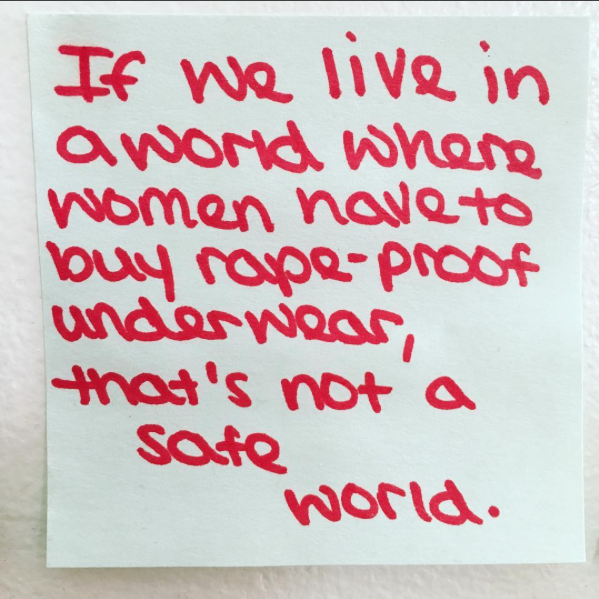 If we live in
a world where
women have to
buy rape-proof
underwear,
that's not a
safe
world.